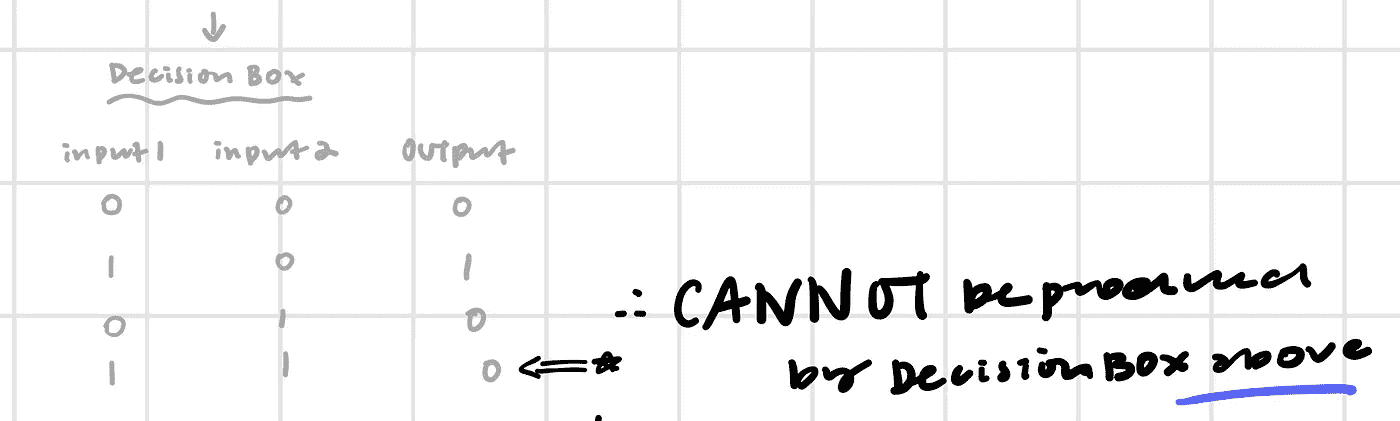 ↓
Decision Box
input1 input2 Output
0 0 0
1 0 1
0 1 0
1 1 0 ⇐*
∴ CANNOT be produced
by Decision Box above